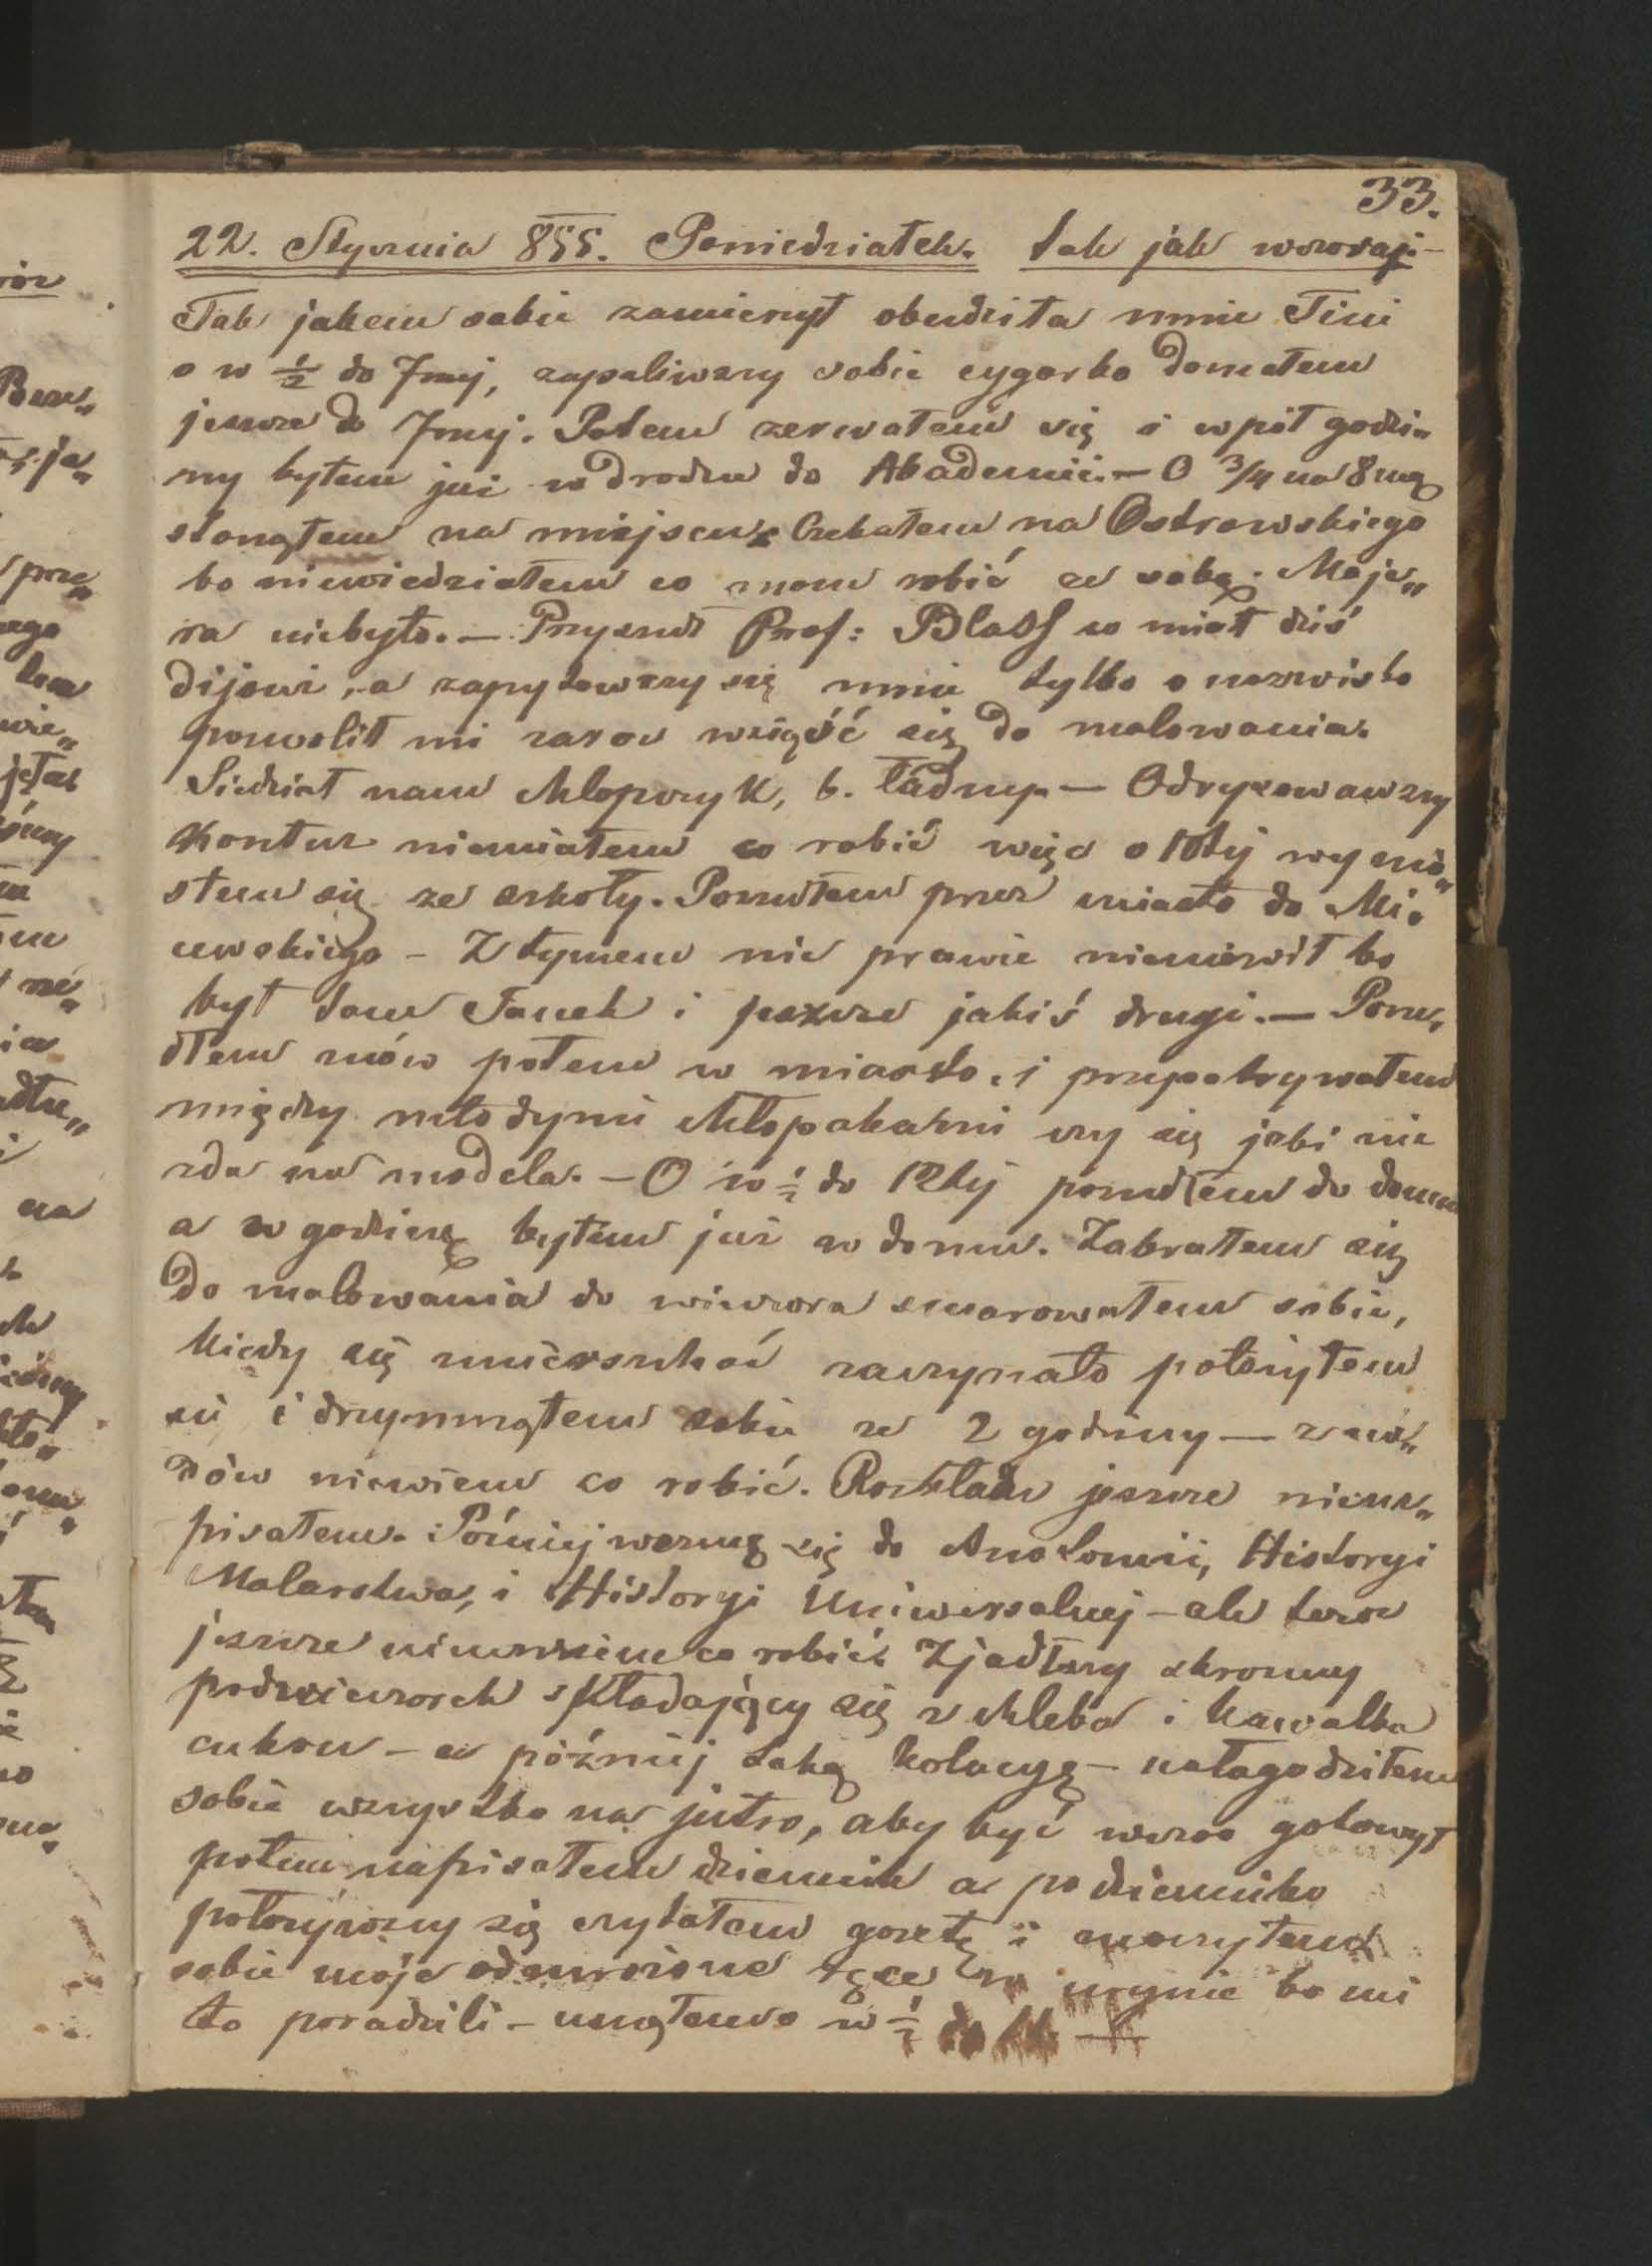 33.
22. Stycznia 855. Poniedziałek. tak jak wczoraj.—
Tak jakem sobie zamierzył obudziła mnie Tini
o w ½ do 7mej, zapaliwszy sobie cygarko
jeszcze do 7mej. Potem zerwałem się i w pół godzi„
ny byłem już w drodze do Akademii.— O ¾ na 8mą
stanąłem na miejscu. Czekałem na Ostrowskiego
bo niewiedziałem co mam robić ze sobą. Maje„
ra niebyło.— Przyszedł Prof: Blaas co miał dziś
dijour, a zapytawszy się mnie tylko o nazwisko
pozwolił mi zaraz wziąść się do malowania.
Siedział nam chłopczyk, b. ładny.— Odrysowawszy
kontur niemiałem co robić więc o 10tej wynio„
słem się ze szkoły. Poszedłem przez miasto do Mi„
cewskiego – Z tymem nic prawie niemówił bo
był tam Janek i jeszcze jakiś drugi.— Posze„
dłem znów potem w miasto, i przypatrywałem
między młodymi chłopakami czy się jaki nie
zda na modela. – O w ½ do 12tej poszedłem do domu
a w godzinę byłem już w domu. Zabrałem się
do malowania do wieczora smarowałem sobie,
kiedy się zmierzchać zaczynało położyłem
się i drzymnąłem sobie ze 2 godziny — znó„
znów niewiem co robić. Rozkładu jeszcze niena„
pisałem. Później wezmę się do Anatomii, Historyi
Malarstwa, i Historyi Uniwersalnej – ale teraz
jeszcze niewiem co robić. Zjadłszy skromny
podwieczorek składający się z chleba i kawałka
cukru – a później taką kolacyę – nałagodziłem
sobie wszystko na jutro, aby być wczas gotowy
potem napisałem dziennik a po dzienniku
położywszy się czytałem gazetę i moczyłem
sobie moje odmrożone ręce w urynie bo mi
to poradzili – usnąłem o w ½ do 11.—